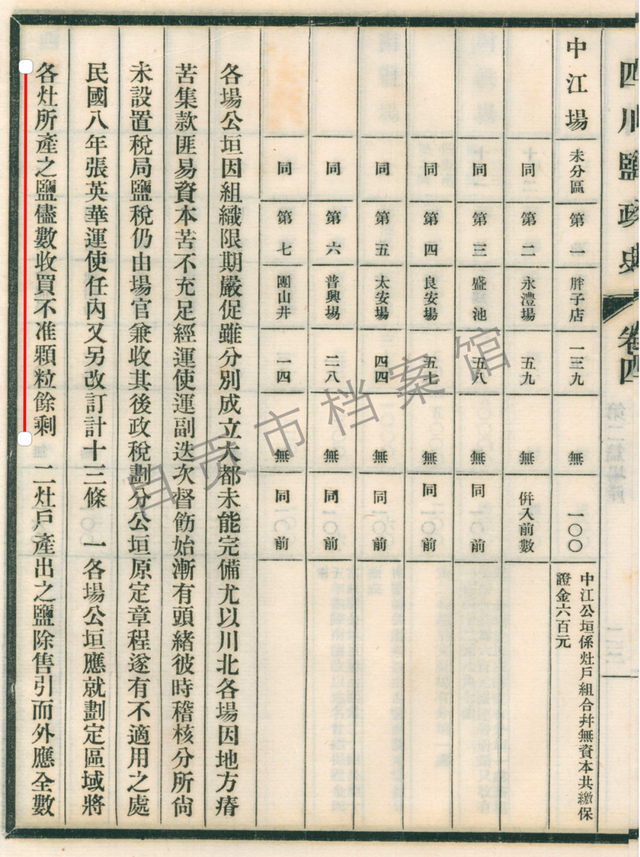 四川鹽政史 卷四
中江場 未分區 第一 胖子店 一三九 無 一〇〇 中江公垣係灶戶組合幷無資本共繳保
證金六百元
同 第二 永灃場 五九 無 併入前數
同 第三 盛池 五八 無 同前
同 第四 良安場 五七 無 同前
同 第五 太安場 四四 無 同前
同 第六 普興場 二八 無 同前
同 第七 團山井 一四 無 同前
各場公垣因組織限期嚴促雖分別成立大都未能完備尤以川北各場因地方瘠
苦集款匪易資本苦不充足經運使運副迭次督飭始漸有頭緒彼時稽核分所尙
未設置稅局鹽稅仍由場官兼收其後政稅劃分公垣原定章程遂有不適用之處
民國八年張英華運使任內又另改訂計十三條 一各場公垣應就劃定區域將
各灶所產之鹽儘數收買不准顆粒餘剩 二灶戶產出之鹽除售引而外應全數
自贡市档案馆